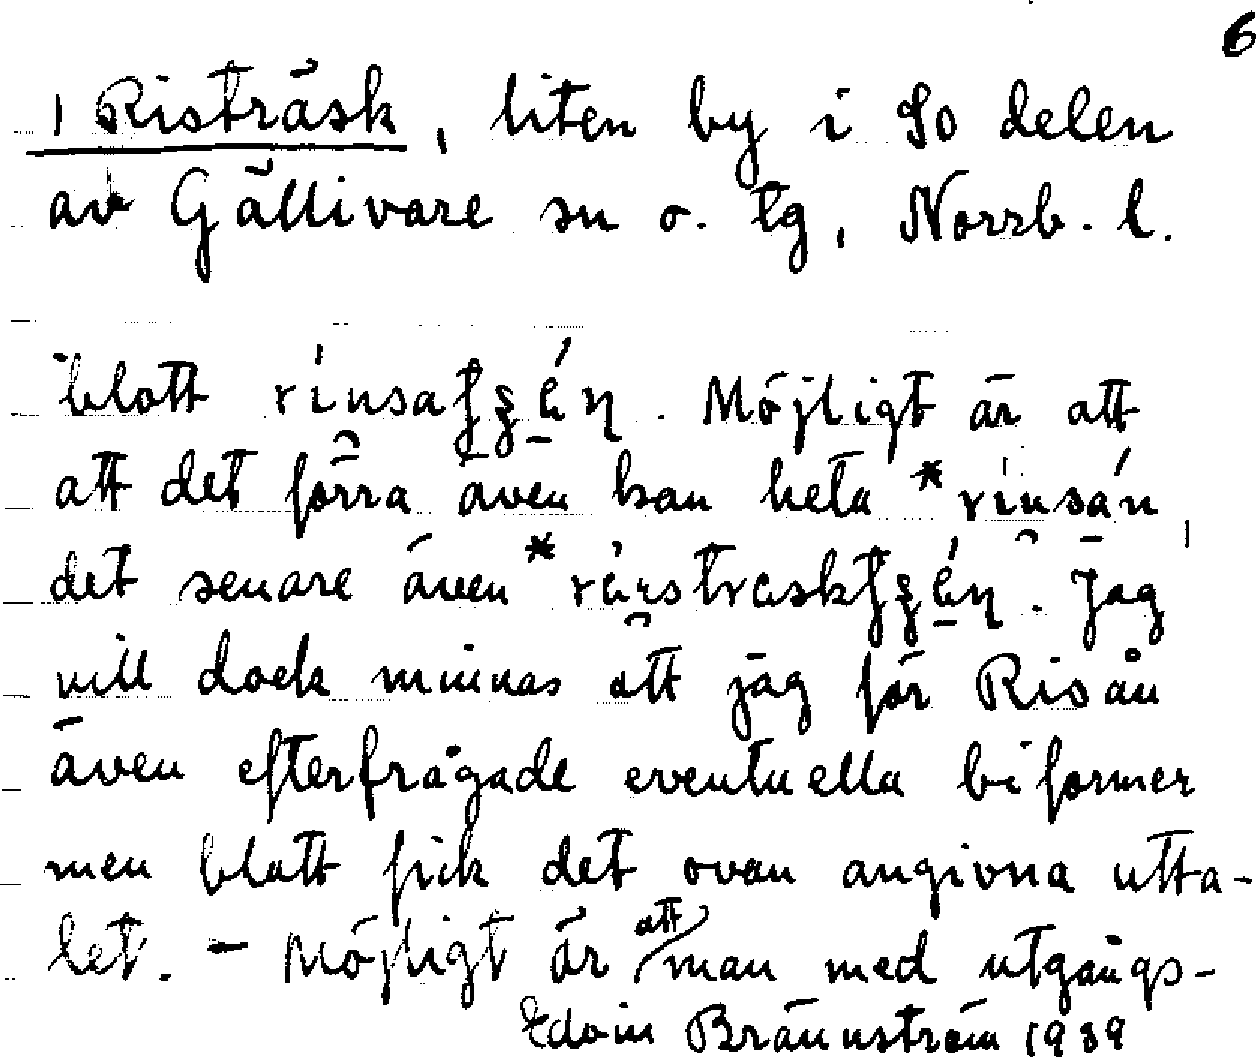 6
1 Risträsk, liten by i So delen
av Gällivare sn o. tg, Norrb. l.
blott Möjligt är att
att det förra även kan heta
det senare även Jag
vill dock minnas att jag för Risån
även efterfrågade eventuella biformer
men blott fick det ovan angivna utta-
let. - Möjligt är att man med utgångs-
Edvin Brännström 1939